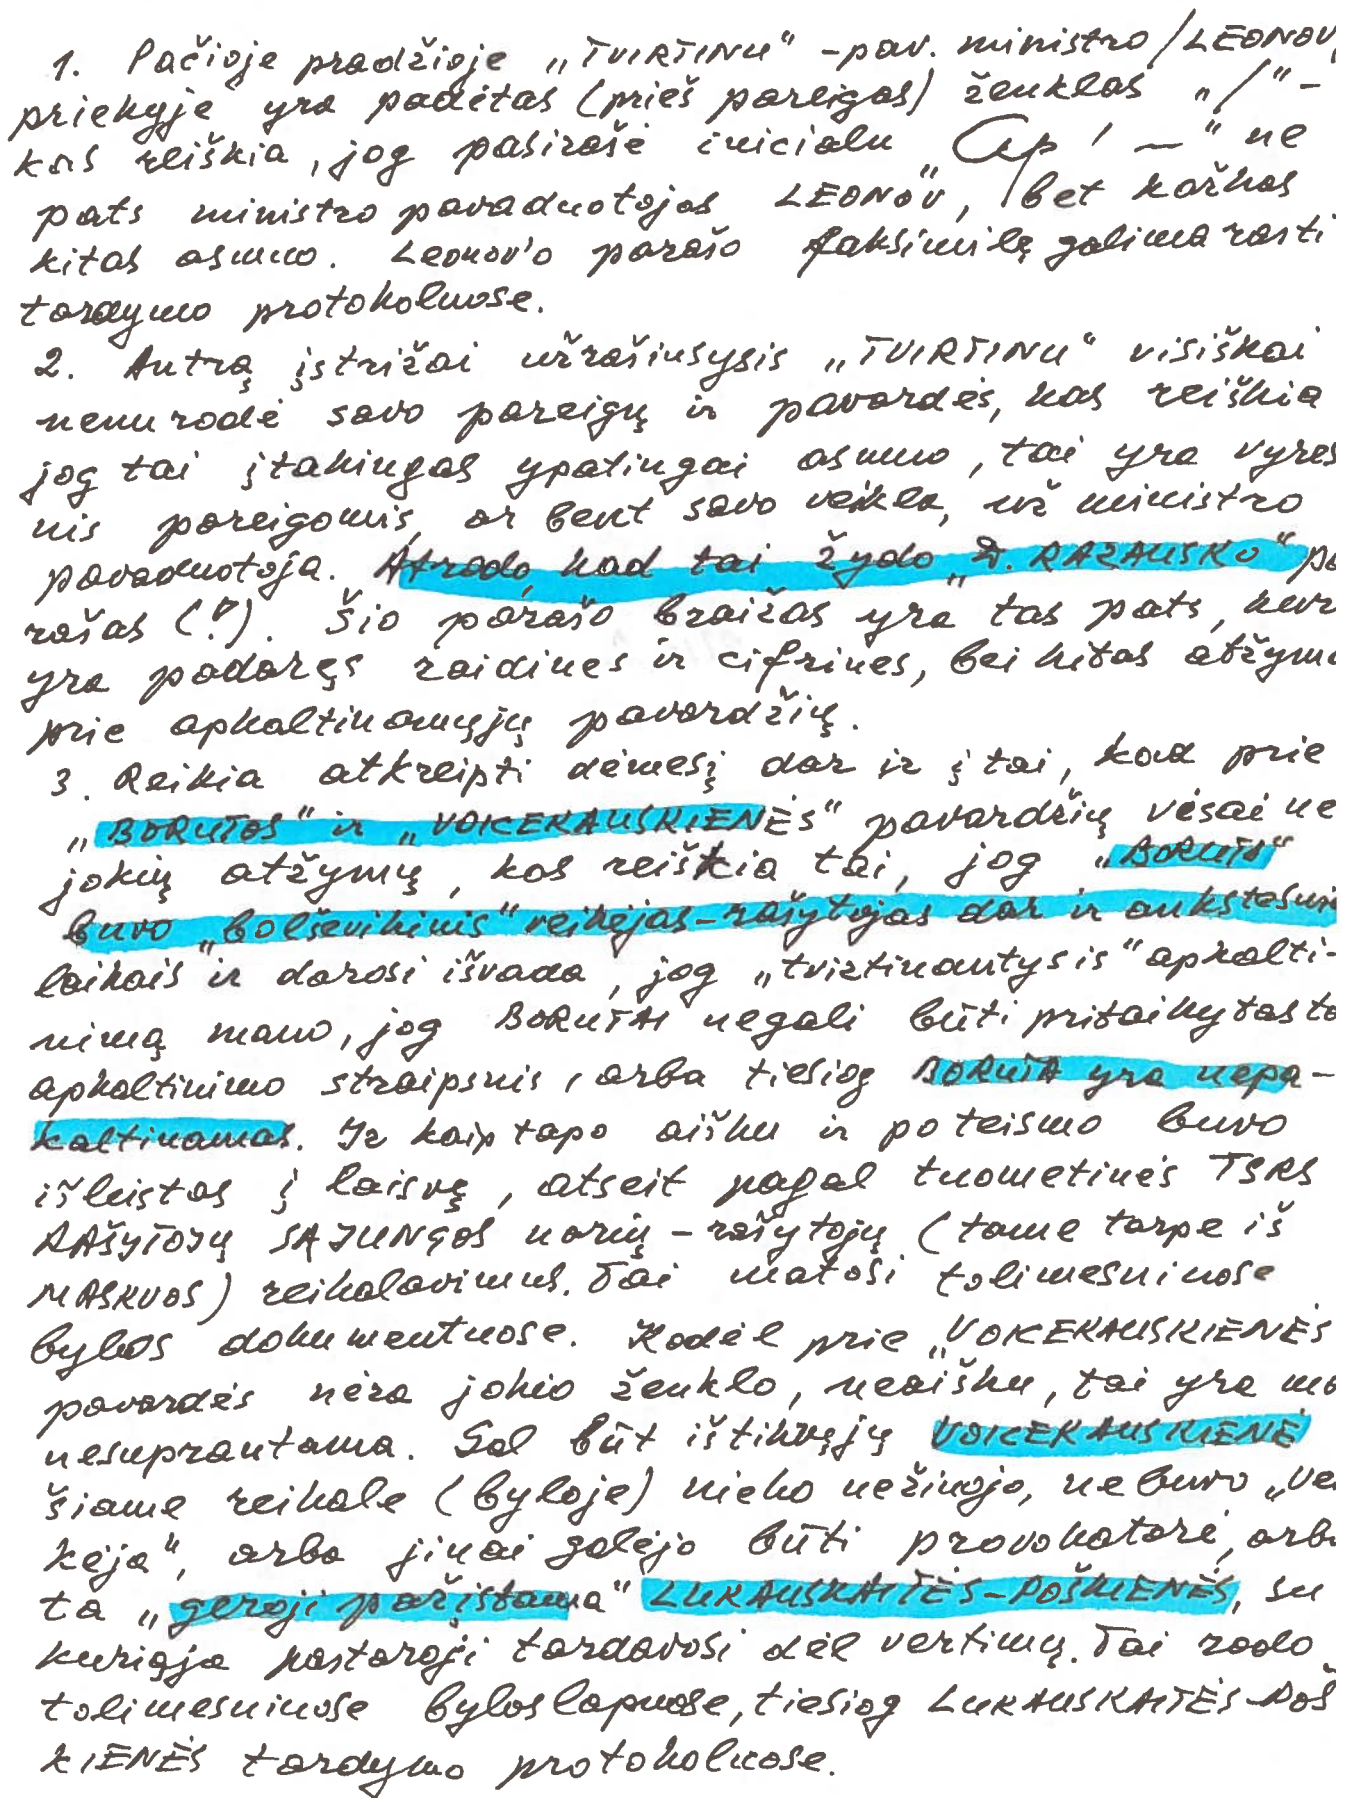 1. Pačioje pradžioje „TVIRTINU“ – pav. ministro / LEONOV,
priekyje yra padėtas (prieš pareigas) ženklas „/“ –
kas reiškia, jog pasirašė inicialu „ “ ne
pats ministro pavaduotojas LEONOV, bet kažkas
kitas asmuo. Leonov'o parašo faksimilę galima rasti
tardymo protokoluose.
2. Antrą įstrižai užrašiusysis „TVIRTINU“ visiškai
nenurodė savo pareigų ir pavardės, kas reiškia
jog tai įtakingas ypatingai asmuo, tai yra vyres
nis pareigomis, ar bent savo veikla, už ministro
pavaduotoja. Atrodo, kad tai žydo „D. RAZAUSKO“ pa
rašas (?). Šio parašo braižas yra tas pats, kur
yra padaręs raidines ir cifrines, bei kitas atžyma
prie apkaltinamųjų pavardžių.
3. Reikia atkreipti dėmesį dar ir į tai, kad prie
„BORUTOS“ ir „VOICEKAUSKIENĖS“ pavardžių vėsai ne
jokių atžymų, kas reiškia tai, jog „BORUTA“
buvo „bolševikinis“ veikėjas–rašytojas dar ir ankstesni
laikais ir darosi išvada, jog „tvirtinantysis“ apkalti-
nimą mano, jog BORUTAI negali būti pritaikytas to
apkaltinimo straipsnis, arba tiesiog BORUTA yra nepa-
kaltinamas. Ir kaip tapo aišku ir po teismo buvo
išleistas į laisvę, atseit pagal tuometinės TSRS
RAŠYTOJŲ SĄJUNGOS narių – rašytojų (tame tarpe iš
MASKVOS) reikalavimus. Tai matosi tolimesniuose
bylos dokumentuose. Kodėl prie „VOICEKAUSKIENĖS
pavardės nėra jokio ženklo, neaišku, tai yra ma
nesuprantama. Gal būt ištikrųjų VOICEKAUSKIENĖ
šiame reikale (byloje) nieko nežinojo, nebuvo „vei
kėja“, arba jinai galėjo būti provokatorė, arba
ta „geroji pažįstama“ LUKAUSKAITĖS–POŠKIENĖS, su
kuriąja pastaroji tardavosi dėl vertimų. Tai rodo
tolimesniuose bylos lapuose, tiesiog LUKAUSKAITĖS–POŠ
KIENĖS tardymo protokoluose.